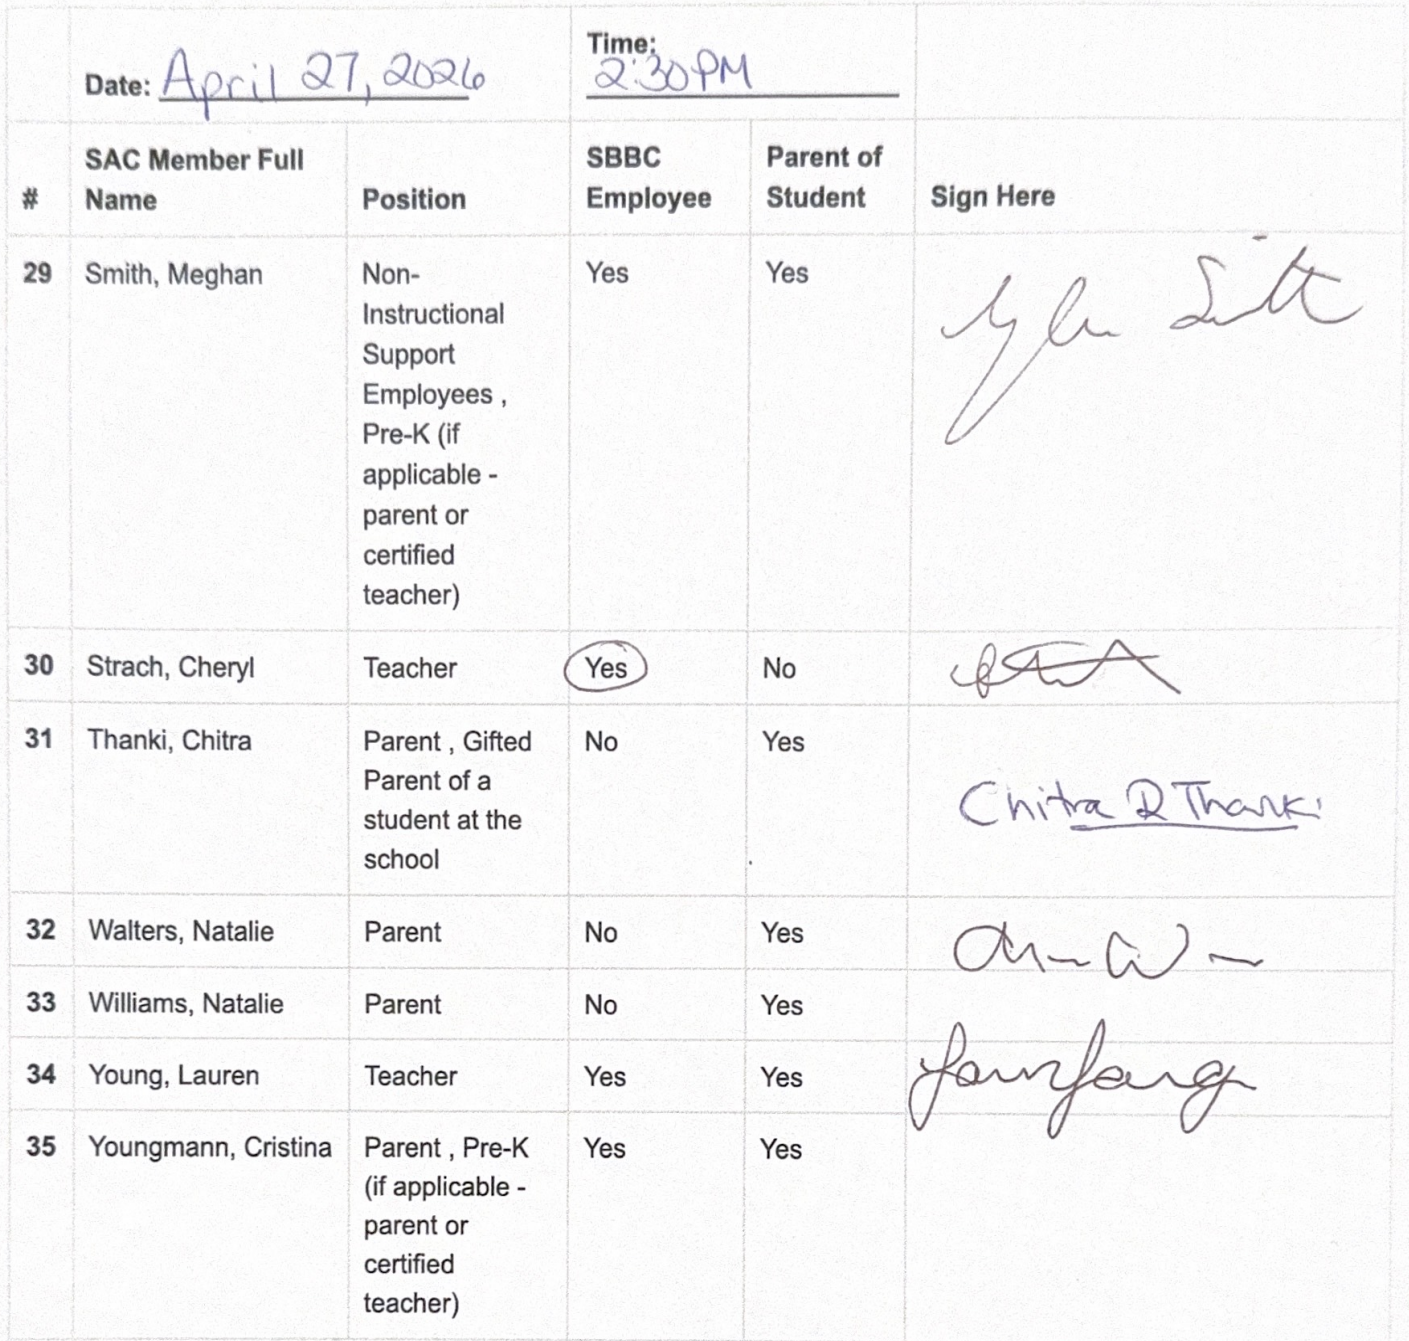 Date: April 27, 2026
Time: 2:30PM
# SAC Member Full Name Position SBBC Employee Parent of Student Sign Here
29 Smith, Meghan Non- Yes Yes
Instructional
Support
Employees ,
Pre-K (if
applicable -
parent or
certified
teacher)
30 Strach, Cheryl Teacher Yes No
31 Thanki, Chitra Parent , Gifted No Yes
Parent of a
student at the
school
Chitra R Thanki
32 Walters, Natalie Parent No Yes
33 Williams, Natalie Parent No Yes
34 Young, Lauren Teacher Yes Yes
35 Youngmann, Cristina Parent , Pre-K Yes Yes
(if applicable -
parent or
certified
teacher)